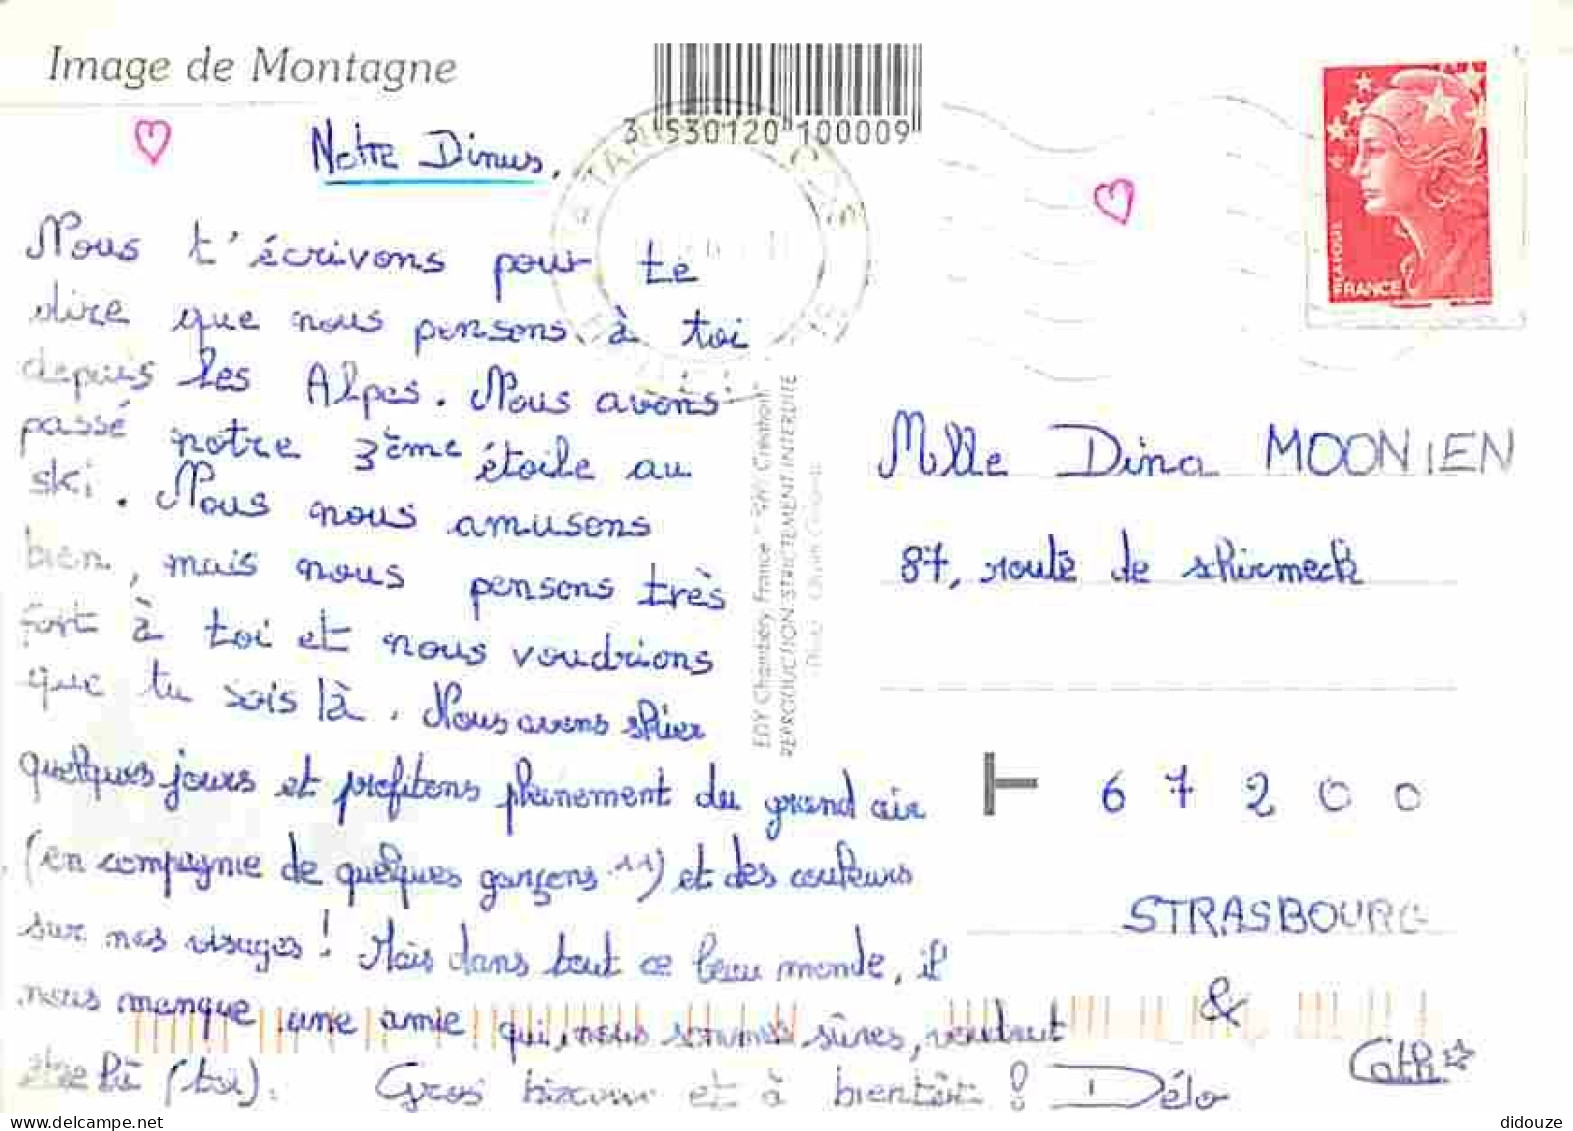 Image de Montagne
3 530120 100009
Notre Dinus,
Nous t'écrivons pour te
dire que nous pensons à toi
depuis les Alpes. Nous avons
passé notre 3ème étoile au
ski. Nous nous amusons
bien, mais nous pensons très
fort à toi et nous voudrions
que tu sois là. Nous avons skier
quelques jours et profitons pleinement du grand air
(en compagnie de quelques garçons ^^) et des couleurs
sur nos visages! Mais dans tout ce beau monde, il
nous manque une amie qui, nous sommes sûres, voudrait
être là (toi). Gros bizoux et à bientôt! Délo
& Cath☆
EDY Chambéry France
REPRODUCTION STRICTEMENT INTERDITE
FRANCE
Mlle Dina MOONIEN
87, route de shirmeck
67200
STRASBOURG
didouze